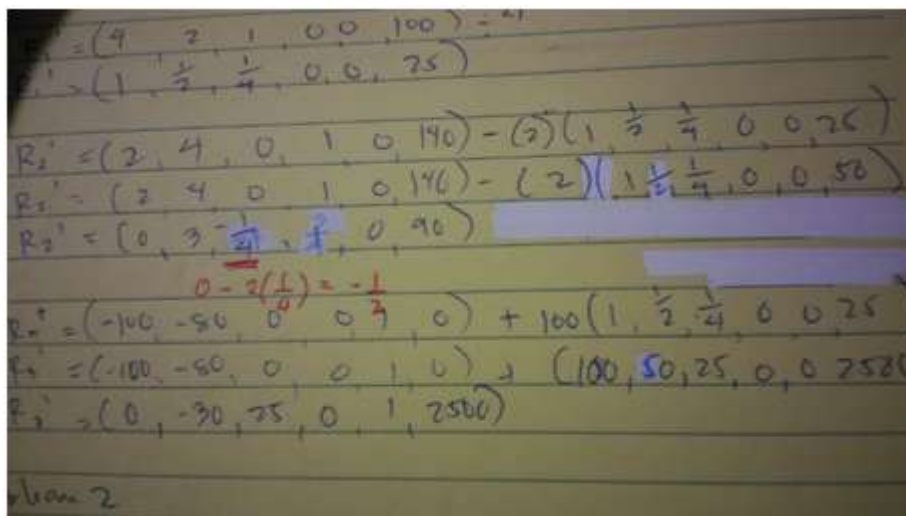 R₁' = (4 2 1 0 0 100) ÷ 4
R₁' = (1, 1/2, 1/4, 0, 0, 25)
R₂' = (2, 4, 0, 1, 0, 140) - (2)(1, 1/2, 1/4, 0, 0, 25)
R₂' = (2 4 0 1 0, 140) - (2)(1, 1/2, 1/4, 0, 0, 50)
R₂' = (0, 3, -1/4, , 0 90)
0 - 2(1/4) = -1/2
= (-100, -80, 0 0 1 0) + 100(1, 1/2, 1/4 0 0 25
= (-100, -80, 0, 0, 1, 0) + (100, 50, 25, 0, 0 2500
= (0, -30, 25, 0 1, 2500)
2